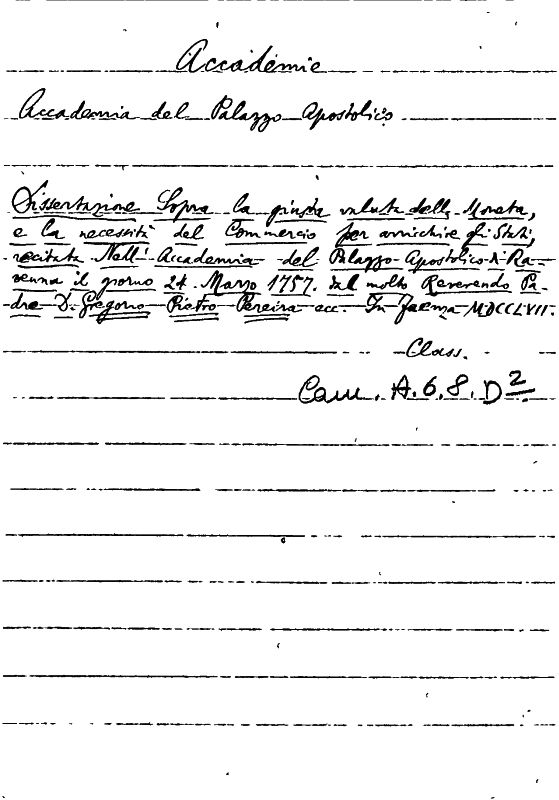 Accademie
Accademia del Palazzo Apostolico
Dissertazione Sopra la giusta valuta della Moneta,
e la necessità del Commercio per arricchire gli Stati,
recitata Nell' Accademia del Palazzo Apostolico di Ra-
venna il giorno 24. Marzo 1757. dal molto Reverendo Pa-
dre D. Gregorio Pietro Pereira ecc. In Faenza MDCCLVII.
Class.
Cam. A. 6. 8. D2